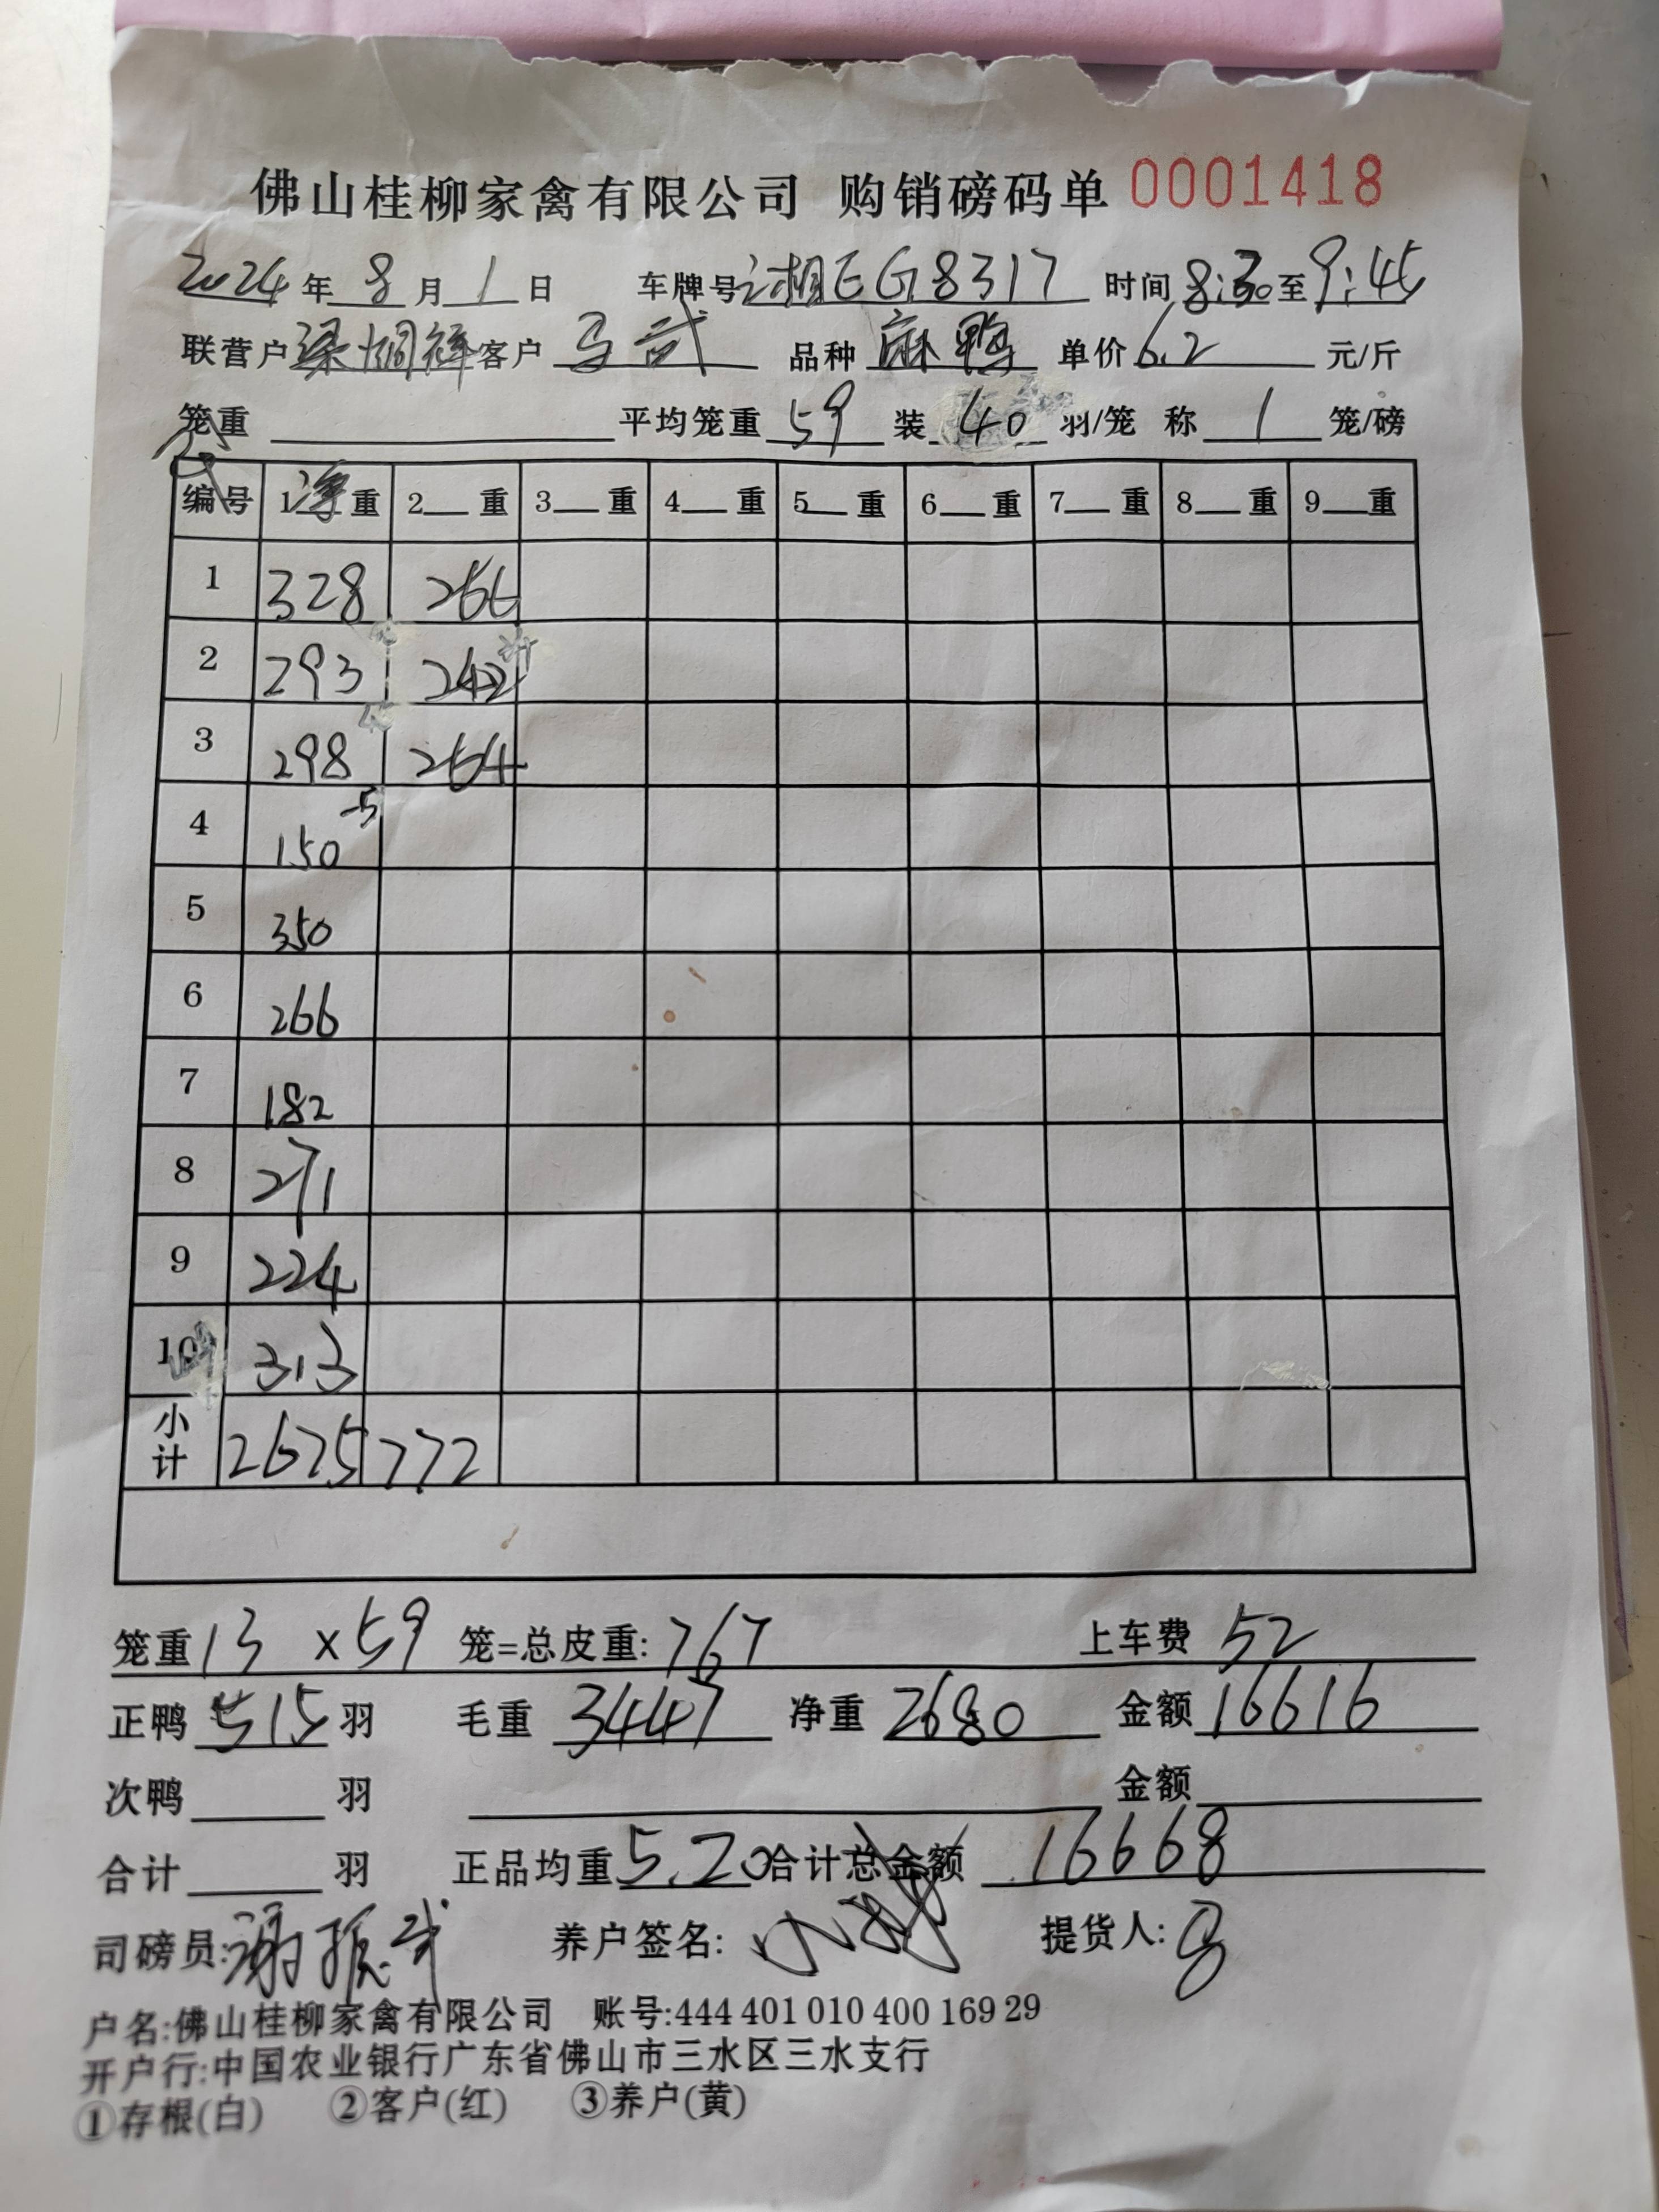 佛山桂柳家禽有限公司 购销磅码单 0001418
2024年 8月 1日 车牌号 湘EG8317 时间 8:30至9:45
联营户 梁炯祥 客户 马武 品种 麻鸭 单价 6.2 元/斤
笼重 平均笼重 59 装 40 羽/笼 称 1 笼/磅
编号 1 净 重 2 重 3 重 4 重 5 重 6 重 7 重 8 重 9 重
1 328 266
2 293 242
3 298 264
4 150 -5
5 350
6 266
7 182
8 271
9 224
10 313
小计 2675 772
笼重 13 x59 笼=总皮重: 767 上车费 52
正鸭 515 羽 毛重 3447 净重 2680 金额 16616
次鸭 羽 金额
合计 羽 正品均重 5.20 合计总金额 16668
司磅员: 谢振武 养户签名: 提货人: 马
户名:佛山桂柳家禽有限公司 账号:444 401 010 400 169 29
开户行:中国农业银行广东省佛山市三水区三水支行
①存根(白) ②客户(红) ③养户(黄)